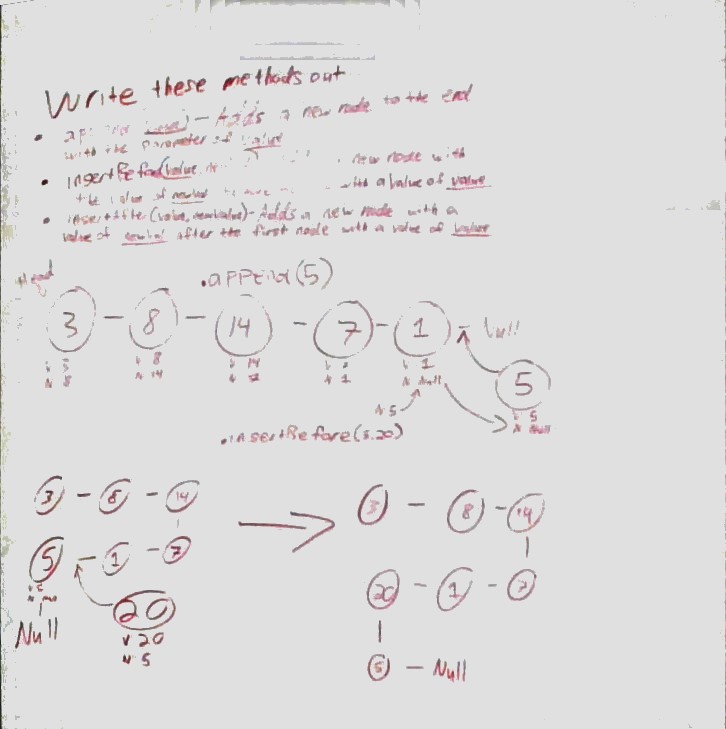 Write these methods out
• append(value) - Adds a new node to the end
with the parameter of value
• insertBefore(value, new node with
the value of newVal with a value of value
• insertAfter(value, newvalue) - Adds a new node with a
value of newVal after the first node with a value of value
Head
.append(5)
3 - 8 - 14 - 7 - 1 - Null
V 3
N 8
V 8
N 14
V 14
N 7
V 7
N 1
V 1
N Null
5
V 5
N Null
N 5
.insertBefore(5,20)
3 - 8 - 14
5 - 1 - 7
V 5
Null
20
V 20
N 5
3 - 8 - 14
20 - 1 - 7
5 - Null